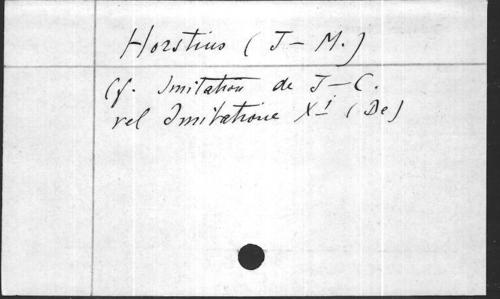 Horstius (J-M.)
Cf. Imitation de J-C.
vel Imitatione XI (De)